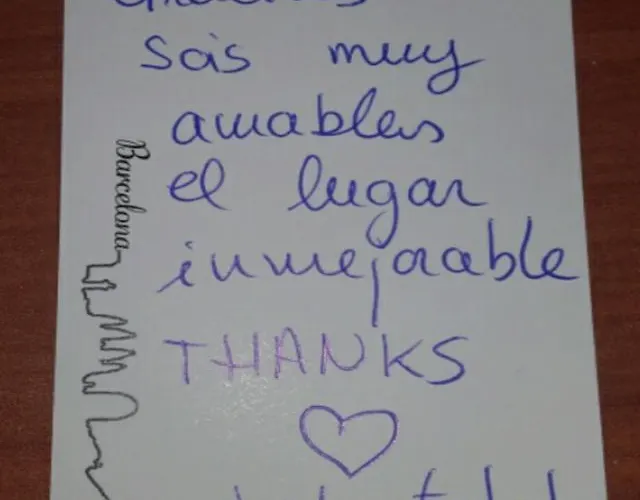 sois muy
amables
el lugar
inmejorable
THANKS
Barcelona